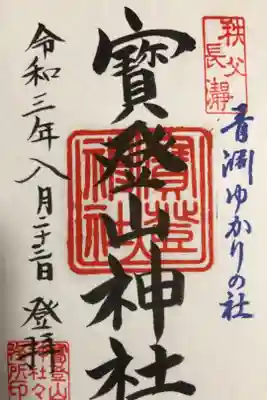 秩父
長瀞
青淵ゆかりの社
寶登山神社
寶登山
神社
令和三年八月二十二日 登拝
寶登山
神社々
務所印